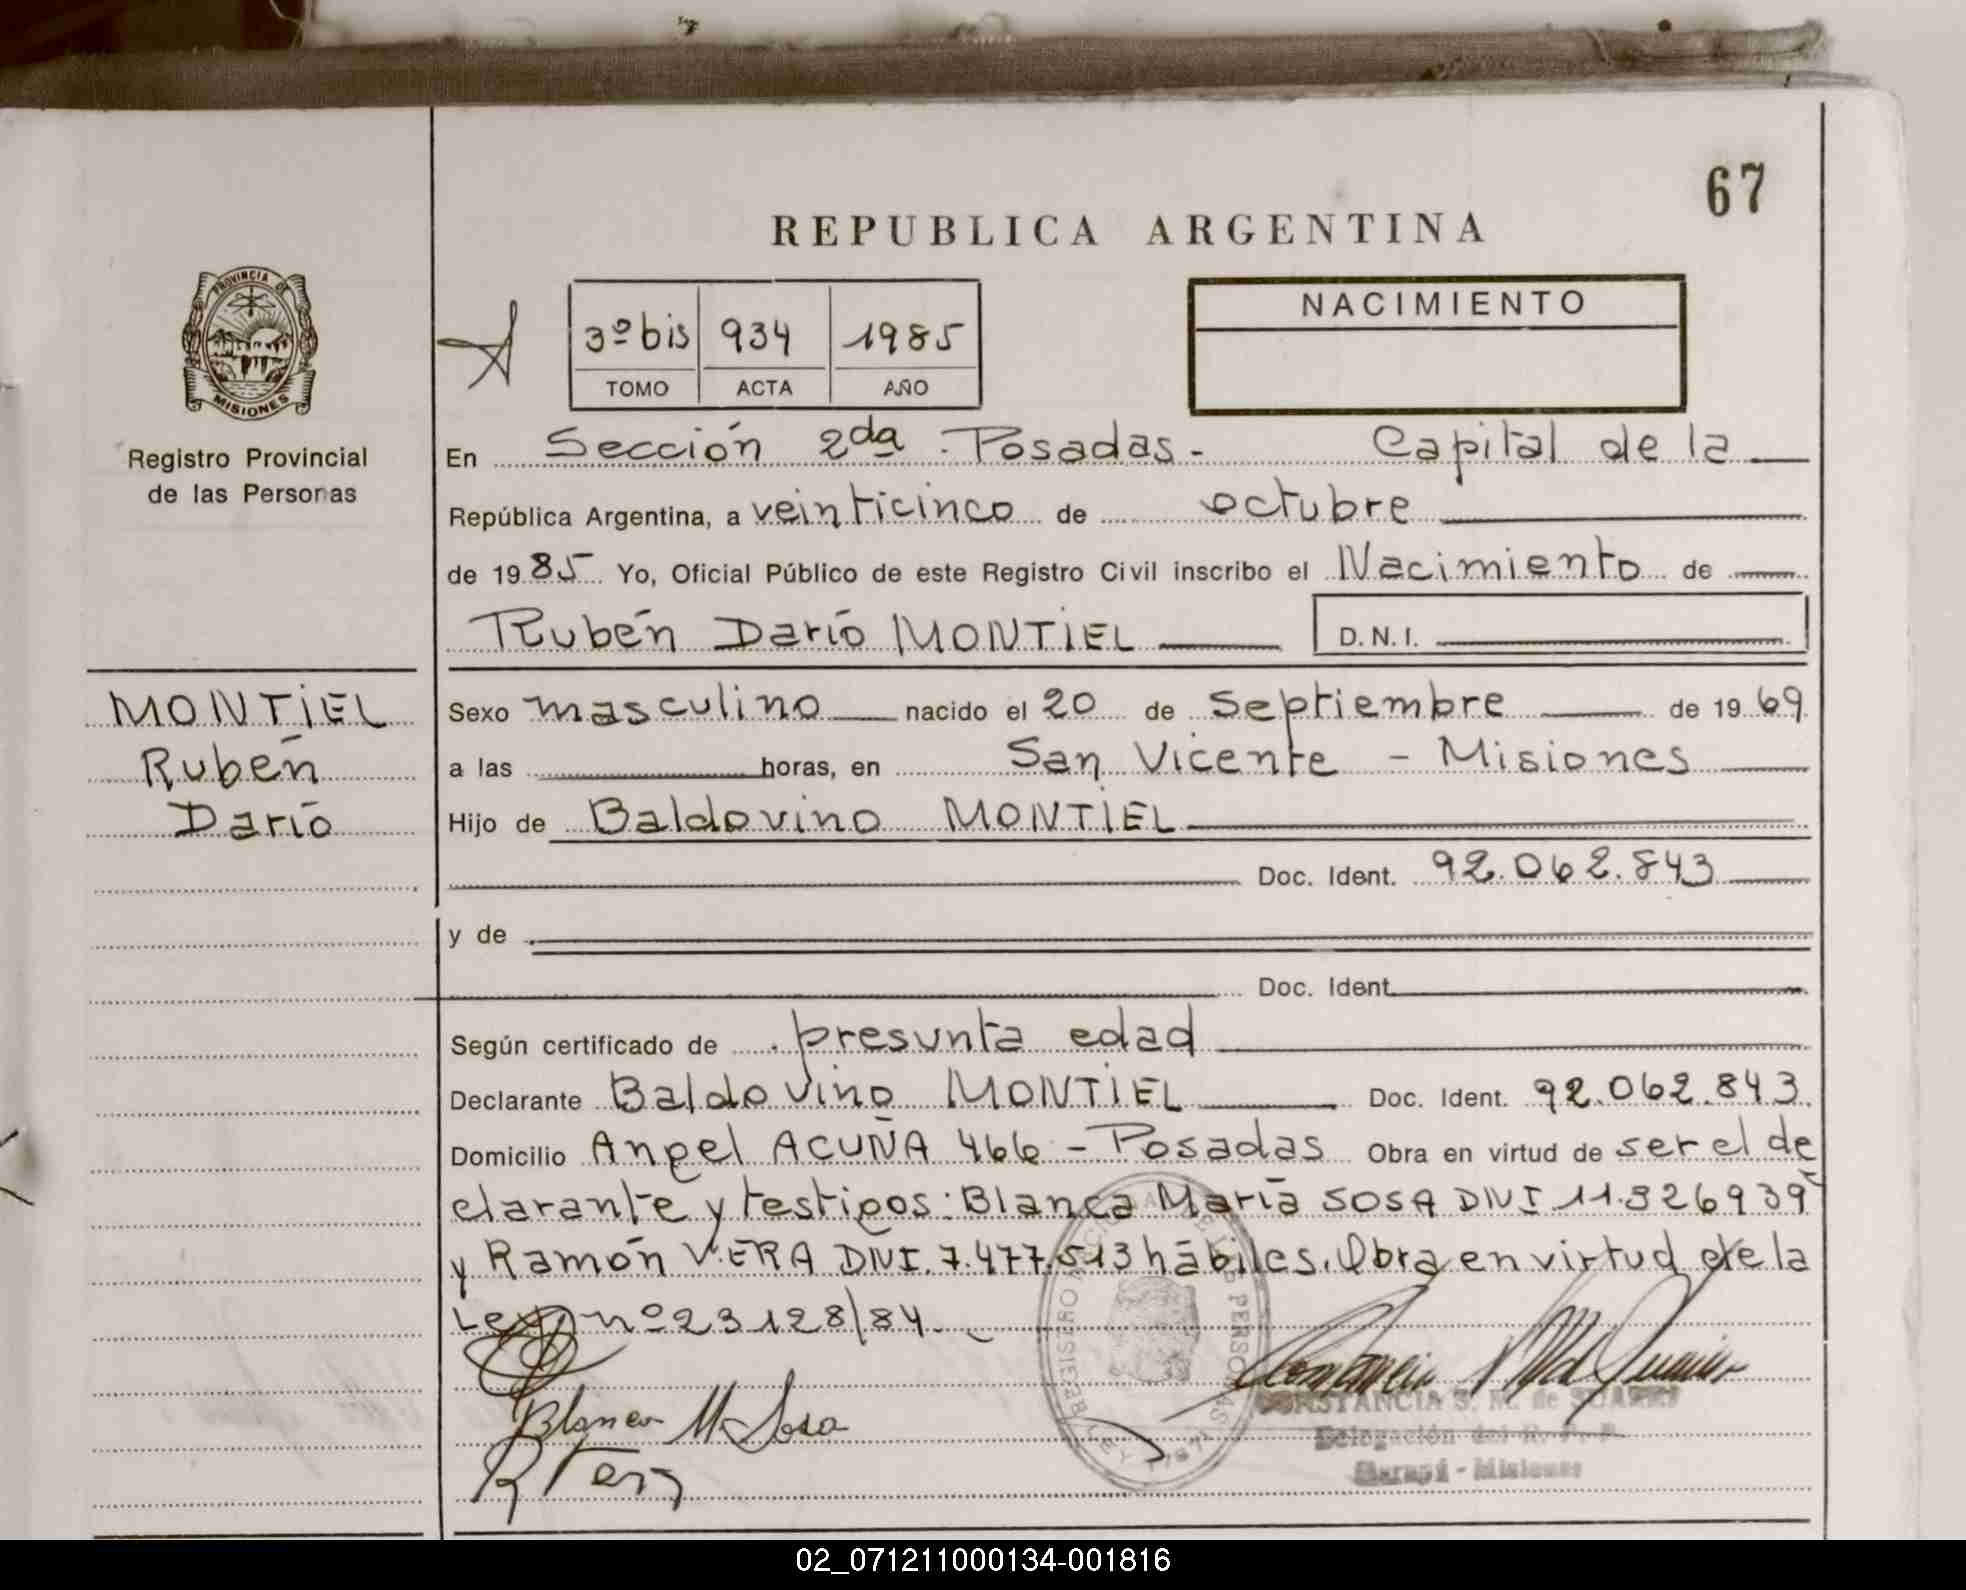 67
REPUBLICA ARGENTINA
PROVINCIA DE
MISIONES
Registro Provincial
de las Personas
3º bis 934 1985
TOMO ACTA AÑO
NACIMIENTO
En Sección 2da. Posadas - Capital de la
República Argentina, a veinticinco de octubre
de 1985 Yo, Oficial Público de este Registro Civil inscribo el Nacimiento de
Rubén Darío MONTIEL D.N.I.
MONTIEL
Rubén
Darío
Sexo masculino nacido el 20 de septiembre de 1969
a las horas, en San Vicente - Misiones
Hijo de Baldovino MONTIEL
Doc. Ident. 92.062.843
y de
Doc. Ident.
Según certificado de presunta edad
Declarante Baldovino MONTIEL Doc. Ident. 92.062.843
Domicilio Angel ACUÑA 466 - Posadas Obra en virtud de ser el de
clarante y testigos: Blanca María SOSA DNI 11.326939
y Ramón VERA DNI. 7.477.513 hábiles. Obra en virtud de la
Ley nº 23128/84.
Blanca M Sosa
R Vera
CONSTANCIA S. M. de SUAREZ
Delegación del R. P. P.
Misiones
02_071211000134-001816